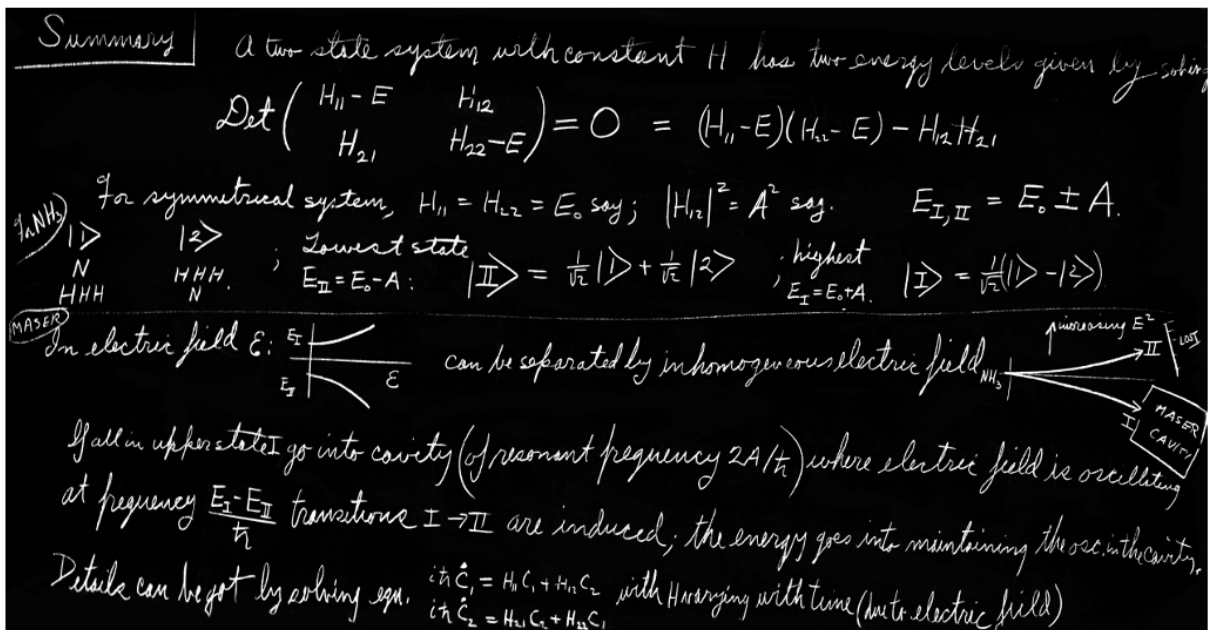 Summary A two state system with constant H has two energy levels given by solving
Det ( H₁₁ - E H₁₂
H₂₁ H₂₂ - E ) = 0 = (H₁₁ - E)(H₂₂ - E) - H₁₂H₂₁
For symmetrical system, H₁₁ = H₂₂ = E₀ say; |H₁₂|² = A² say. E_I,II = E₀ ± A.
In NH₃
|1> |2> ; Lowest state ; highest
N HHH E_II = E₀ - A: |II> = 1/√2 |1> + 1/√2 |2> E_I = E₀ + A. |I> = 1/√2 (|1> - |2>)
HHH N
MASER
In electric field ℰ: E_I E_II ℰ can be separated by inhomogeneous electric field NH₃ increasing E² II LOST I MASER CAVITY
If all in upper state I go into cavity (of resonant frequency 2A/ℏ) where electric field is oscillating
at frequency (E_I - E_II)/ℏ transitions I → II are induced; the energy goes into maintaining the osc. in the cavity.
Details can be got by solving eqn. iℏĊ₁ = H₁₁C₁ + H₁₂C₂ with H varying with time (due to electric field)
iℏĊ₂ = H₂₁C₂ + H₂₂C₁